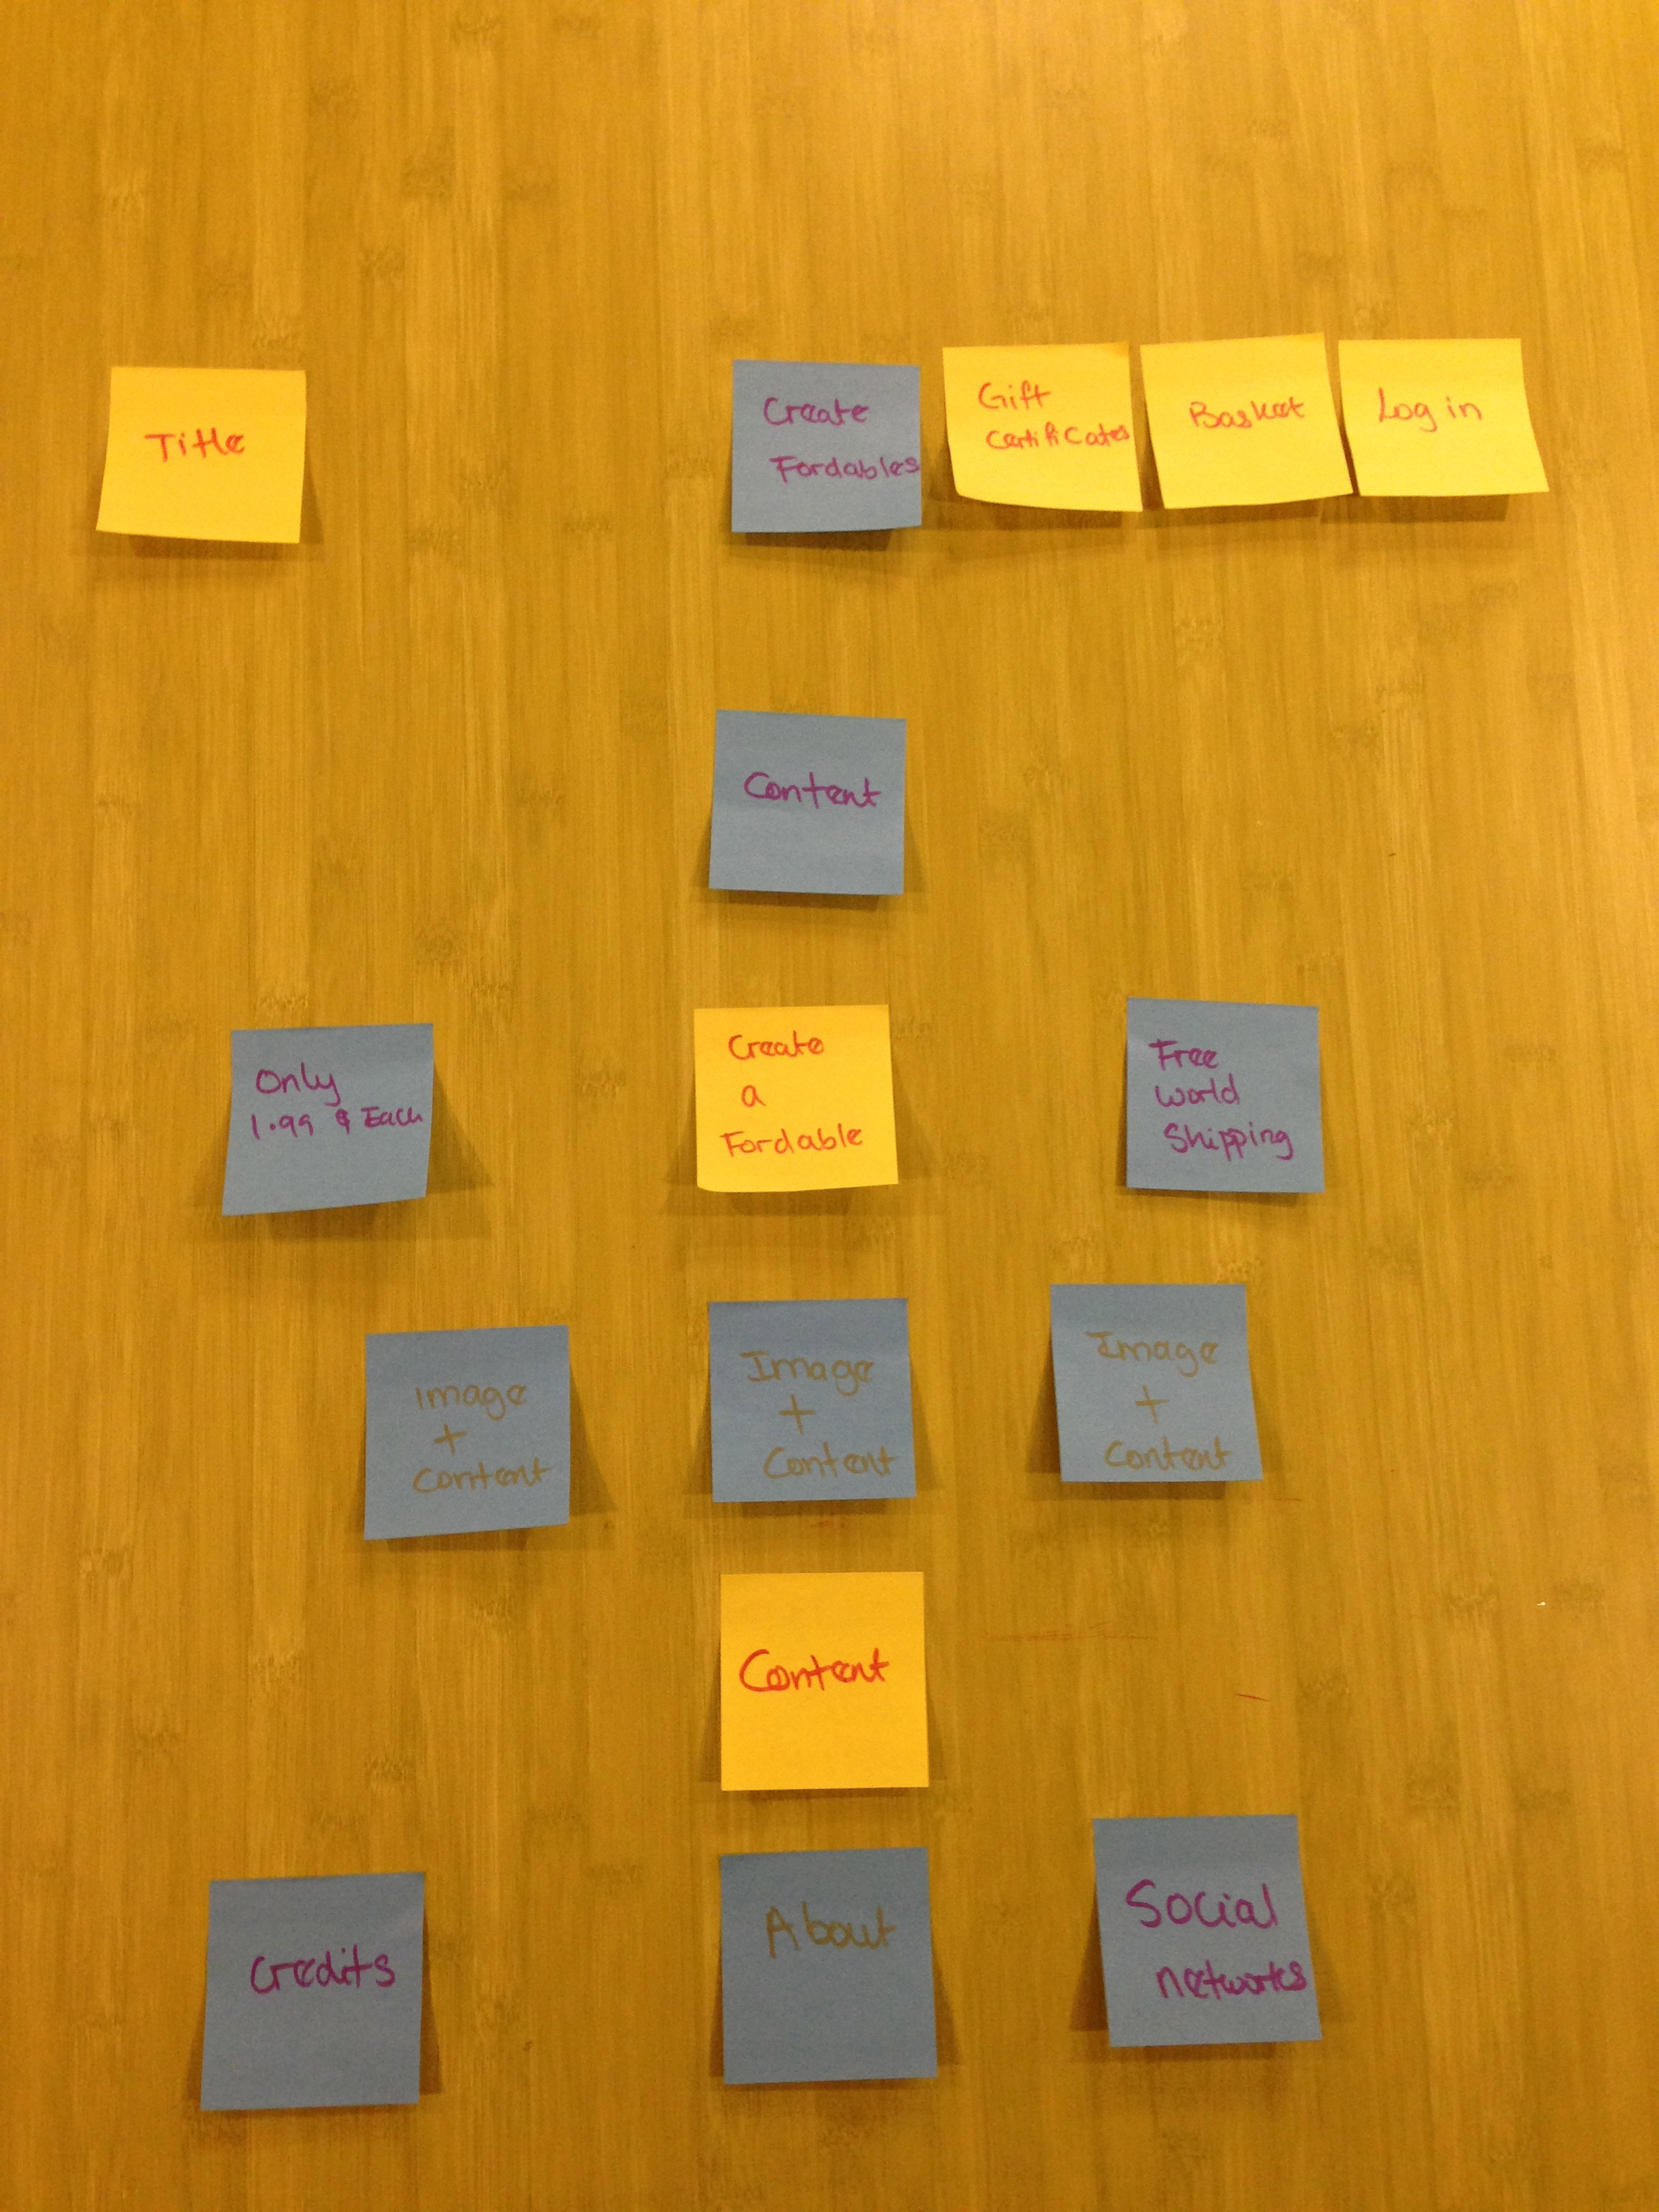 Title
Create
Fordables
Gift
Certificates
Basket
Log in
Content
Only
1.99 $ Each
Create
a
Fordable
Free
World
Shipping
Image
+
Content
Image
+
Content
Image
+
Content
Content
Credits
About
Social
networks